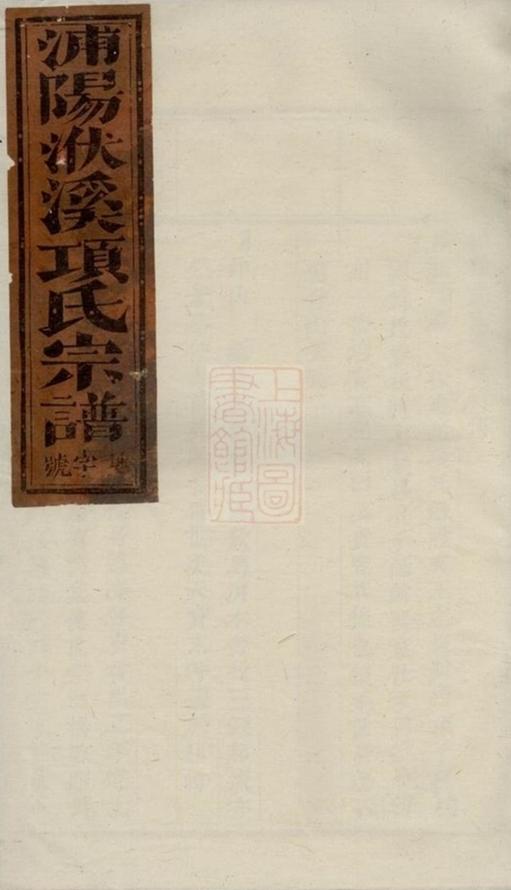 浦陽洑溪項氏宗譜
地字號
上海圖
書館藏